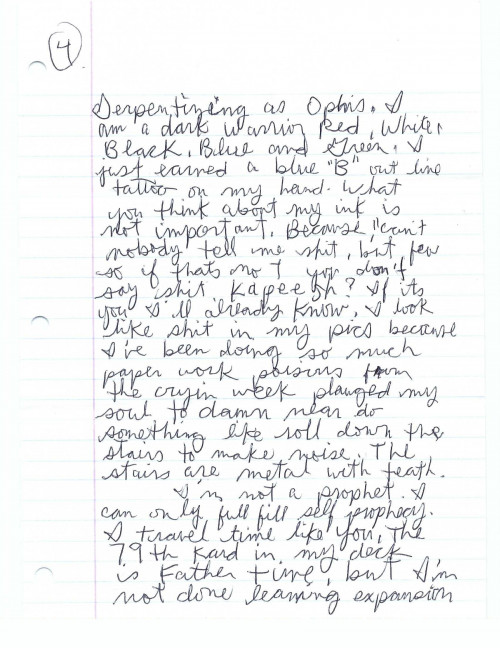 4
Serpentizing as Ophis. I
am a dark warrior Red, White,
Black, Blue and Green. I
just earned a blue "B" out line
tattoo on my hand. What
you think about my ink is
not important. Because, "can't
nobody tell me shit, but few
so if thats no T you don't
say shit. Kapeesh? If its
you I'll already know, I look
like shit in my pics because
I've been doing so much
paper work poisins from
the cryin week planged my
soul to damn near do
something like roll down the
stairs to make noise. The
stairs are metal with teath.
I'm not a prophet. I
can only full fill self prophecy.
I travel time like you, the
79th Kard in my deck
is Father time, but I'm
not done learning expansion